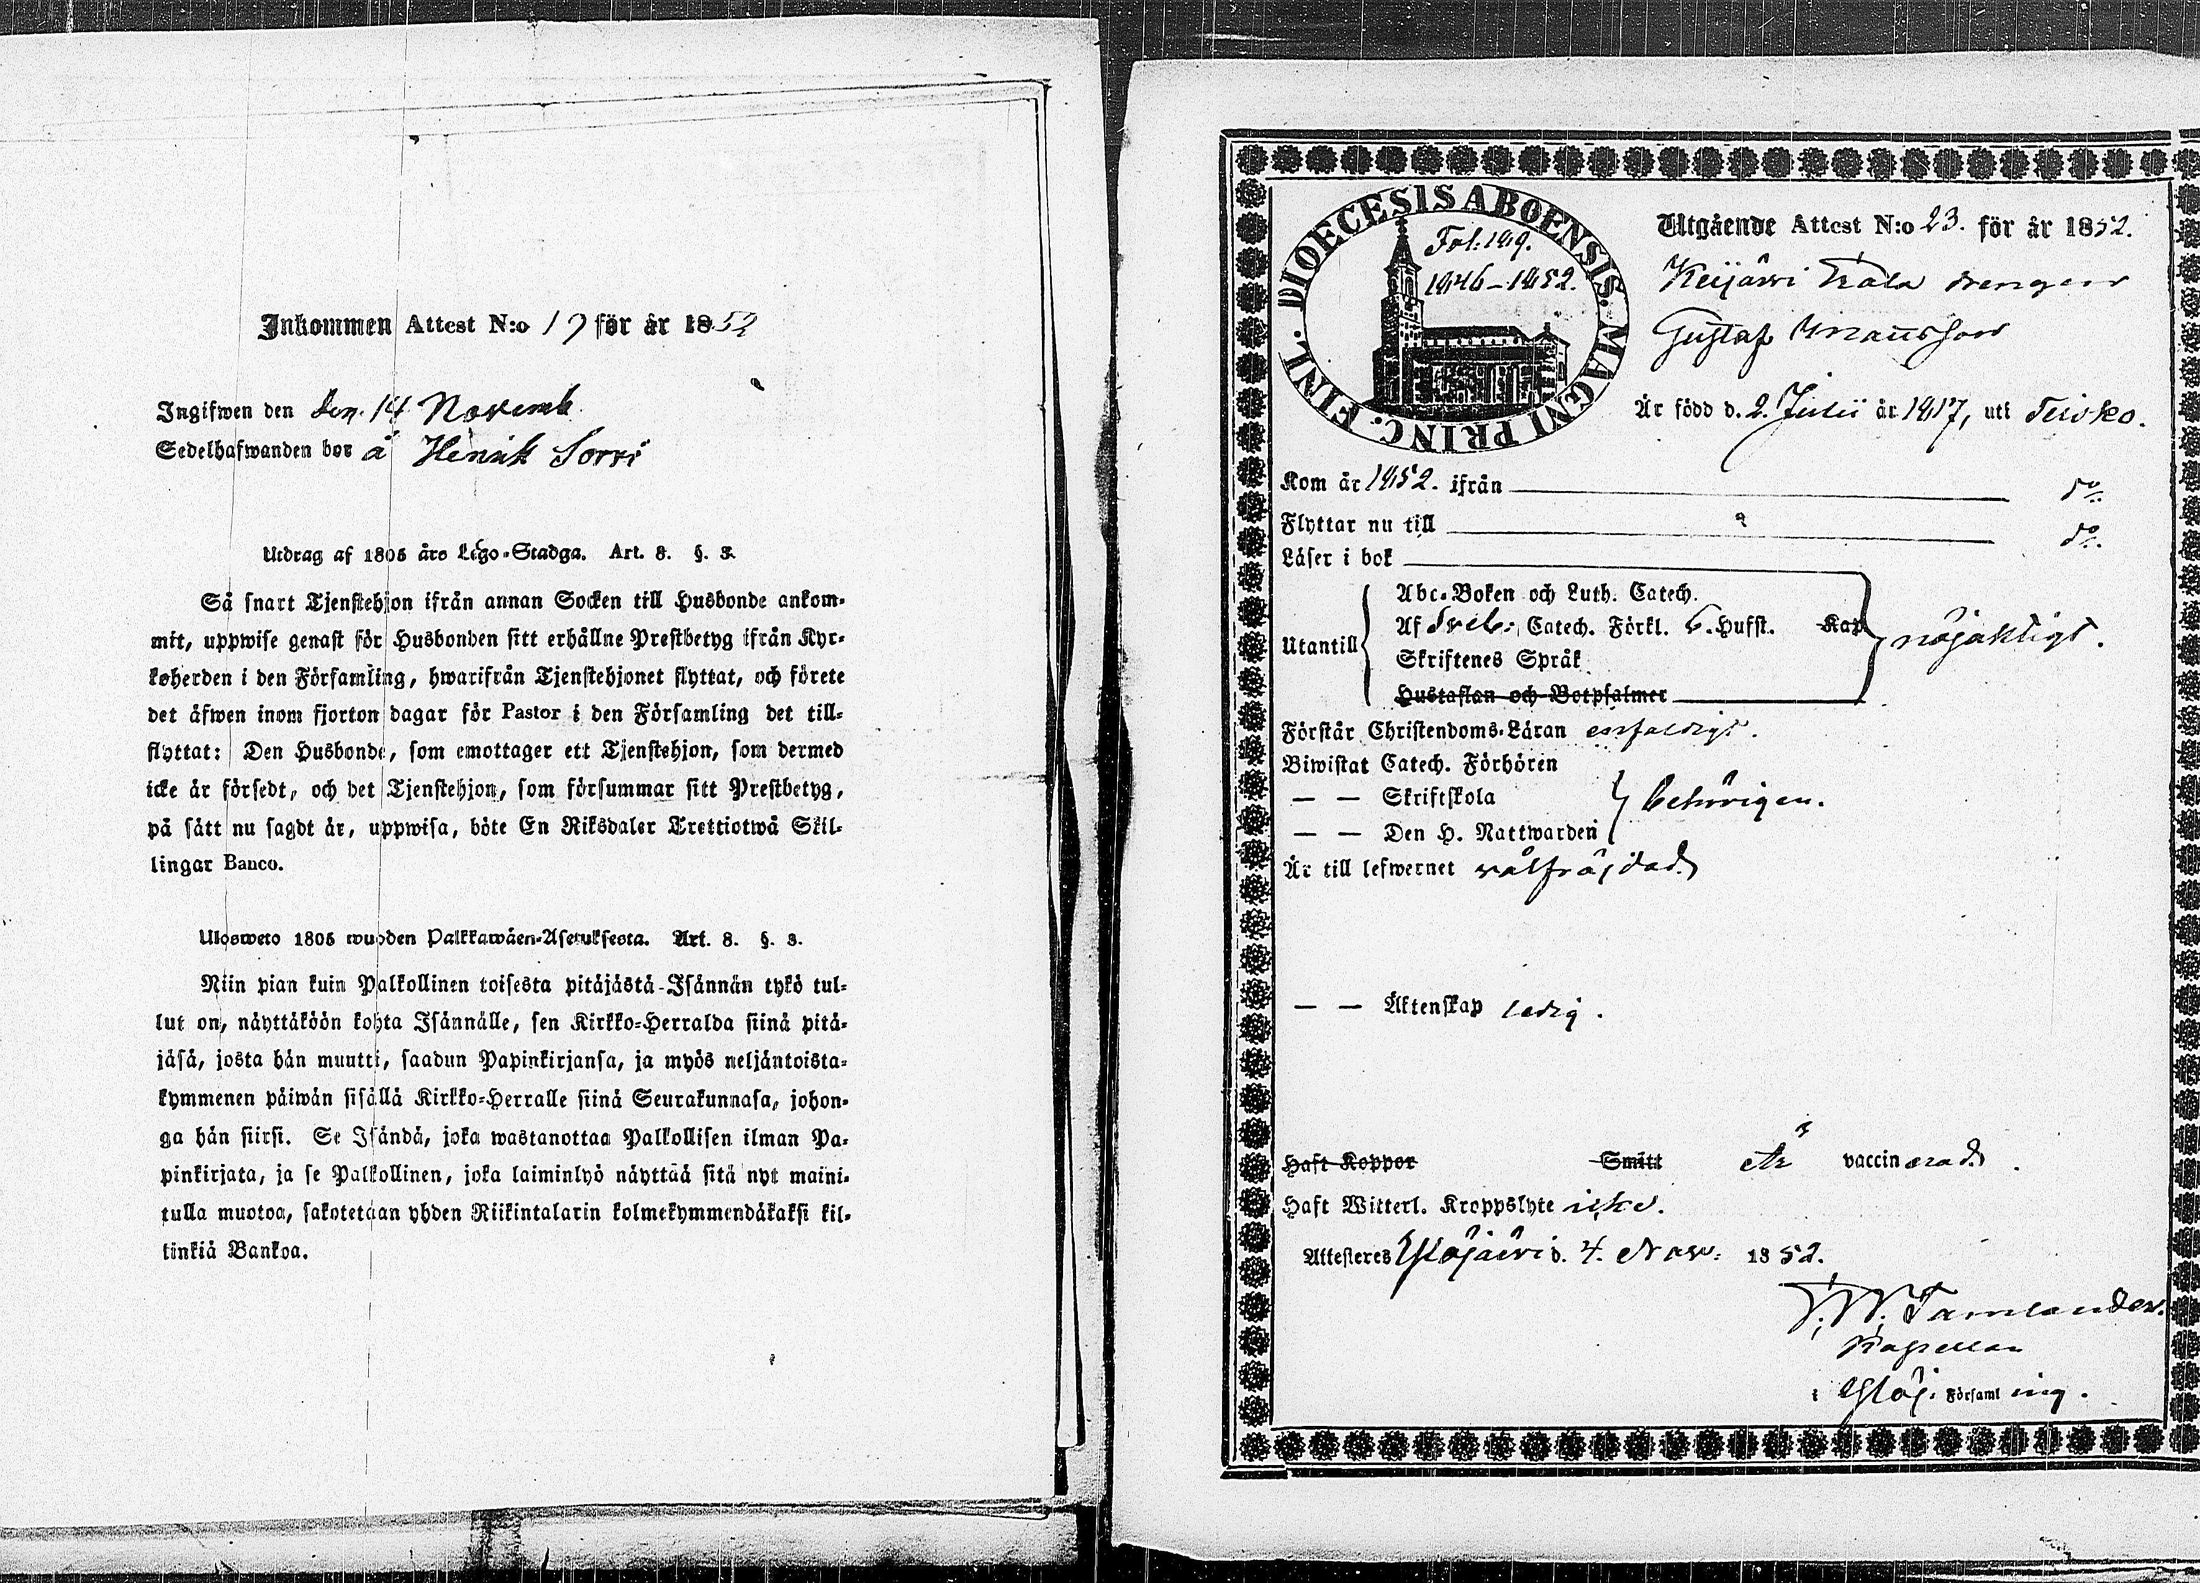 Inkommen Attest N:o 19 för år 1852
Ingifwen den den 14 Novemb
Sedelhafwanden bor å Henrik Sorri
Utdrag af 1805 års Lego-Stadga. Art. 8. §. 3.
Så snart Tjenstehjon ifrån annan Socken till Husbonde ankom-
mit, uppwise genast för Husbonden sitt erhållne Prestbetyg ifrån Kyr-
koherden i den Församling, hwarifrån Tjenstehjonet flyttat, och förete
det äfwen inom fjorton dagar för Pastor i den Församling det till-
flyttat: Den Husbonde, som emottager ett Tjenstehjon, som dermed
icke är försedt, och det Tjenstehjon, som försummar sitt Prestbetyg,
på sätt nu sagdt är, uppwisa, böte En Riksdaler Trettiotwå Skil-
lingar Banco.
Ulosweto 1805 wuoden Palkkawäen-Asetuksesta. Art. 8. §. 3.
Niin pian kuin Palkollinen toisesta pitäjästä Isännän tykö tul-
lut on, näyttäköön kohta Isännälle, sen Kirkko-Herralda siinä pitä-
jäsä, josta hän muutti, saadun Papinkirjansa, ja myös neljäntoista-
kymmenen päiwän sisällä Kirkko-Herralle siinä Seurakunnasa, johon-
ga hän siirsi. Se Isändä, joka wastanottaa Palkollisen ilman Pa-
pinkirjata, ja se Palkollinen, joka laiminlyö näyttää sitä nyt maini-
tulla muotoa, sakotetaan yhden Riikintalarin kolmekymmendäkaksi kil-
linkiä Bankoa.
DIOECESIS ABOENSIS. MAGNI PRINC. FINL.
Fol. 149.
1846-1852.
Utgående Attest N:o 23. för år 1852.
Keijärwi drengen
Gustaf
Är född d. 2. Julii år 1817, uti Teisko.
Kom år 1852. ifrån do
Flyttar nu till do
Läser i bok
Utantill
Abc-Boken och Luth. Catech.
Af Sveb. Catech. Förkl. 6. Hufst. Kap
Skriftenes Språk
Hustaflan och Botpsalmer
nöjaktigt.
Förstår Christendoms-Läran enfaldigt.
Biwistat Catech. Förhören
— — Skriftskola
— — Den H. Nattwarden
behörigen.
Är till lefwernet välfräjdad.
— — Äktenskap ledig.
Haft Koppor Smitt Är vaccinerad.
Haft Witterl. Kroppslyte icke.
Attesteres Ylöjärvi d. 4. Nov: 1852.
Tamlander.
Kapellan
i Ylöj. Församling.